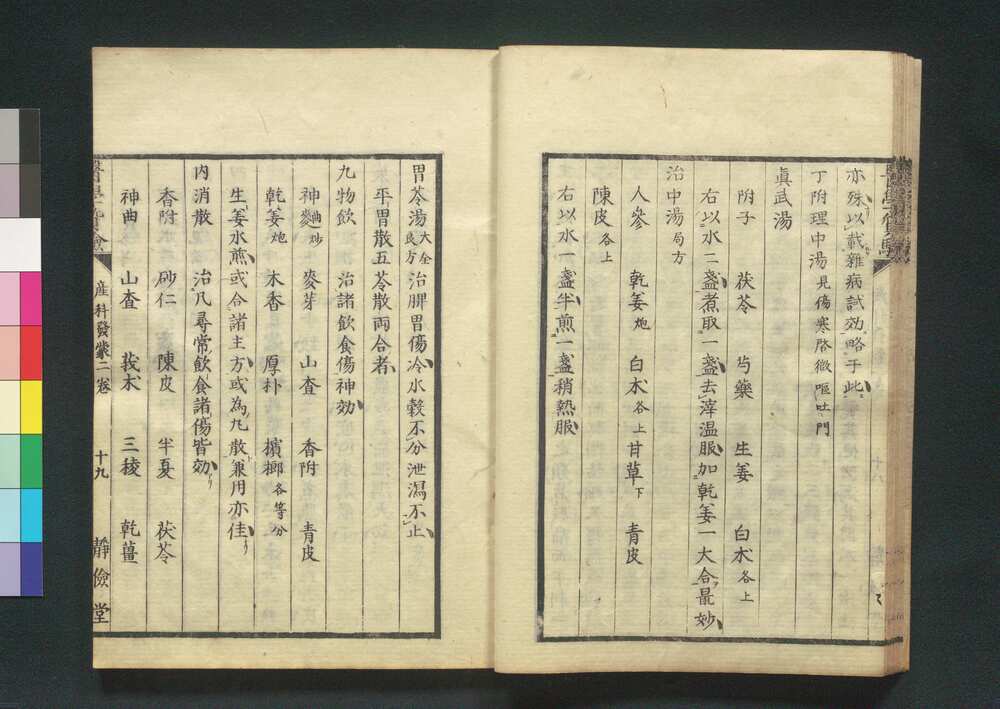 亦殊以載雜病試効略于此
丁附理中湯見傷寒啓微嘔吐門
眞武湯
附子 茯苓 芍藥 生姜 白朮各上
右以水二盞煮取一盞去滓温服加乾姜一大合最妙
治中湯局方
人參 乾姜炮 白朮各上 甘草下 青皮
陳皮各上
右以水一盞半煎一盞稍熱服
胃苓湯大全良方 治脾胃傷冷水穀不分泄瀉不止
平胃散五苓散両合者
九物飲 治諸飲食傷神効
神麯炒 麥芽 山査 香附 青皮
乾姜炮 木香 厚朴 檳榔各等分
生姜水煎或合諸主方或為丸散兼用亦佳
内消散 治凡尋常飲食諸傷皆効
香附 砂仁 陳皮 半夏 茯苓
神曲 山査 莪朮 三稜 乾薑
産科發蒙二卷 十九 靜儉堂